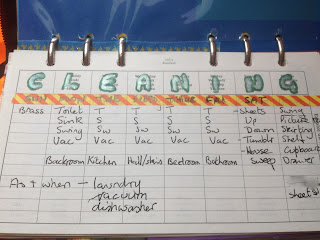 CLEANING
SUN MON TUE WEDS THUR FRI SAT
Brass Toilet T T T T Sheets Swing
Sink S S S S Up Picture
Swing Sw Sw Sw Sw Down Skirting
Vac Vac Vac Vac Vac Tumble Shelf
House Cupboard
Backroom Kitchen Hall/stairs Bedroom Bathroom Sweep Drawer
As + when - laundry
vacuum
dishwasher
sheets